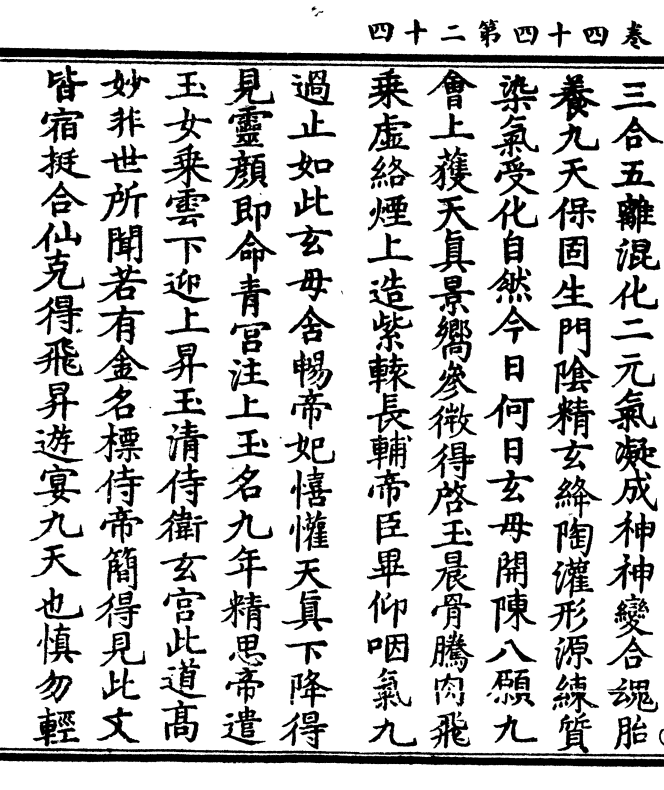 卷四十四第二十四
三合五離混化二元氣凝成神神變合魂胎
養九天保固生門陰精玄絳陶灌形源練質
染氣受化自然今日何日玄母開陳八願九
會上獲天眞景嚮參微得啓玉晨骨騰肉飛
乘虛絡煙上造紫轅長輔帝臣畢仰咽氣九
過止如此玄母含暢帝妃憘懽天眞下降得
見靈顏即命青宮注上玉名九年精思帝遣
玉女乘雲下迎上昇玉清侍衛玄宮此道高
妙非世所聞若有金名標侍帝簡得見此文
皆宿挺合仙克得飛昇遊宴九天也慎勿輕